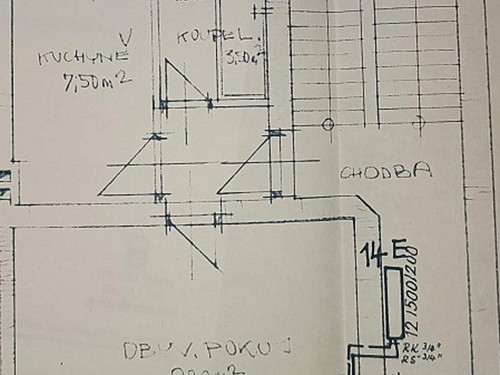 KUCHYNĚ
7,50m²
KOUPEL.
3,50m²
CHODBA
14 E
12 1500 1200
RK 3/4"
RS-3/4"
OBÝV. POKOJ